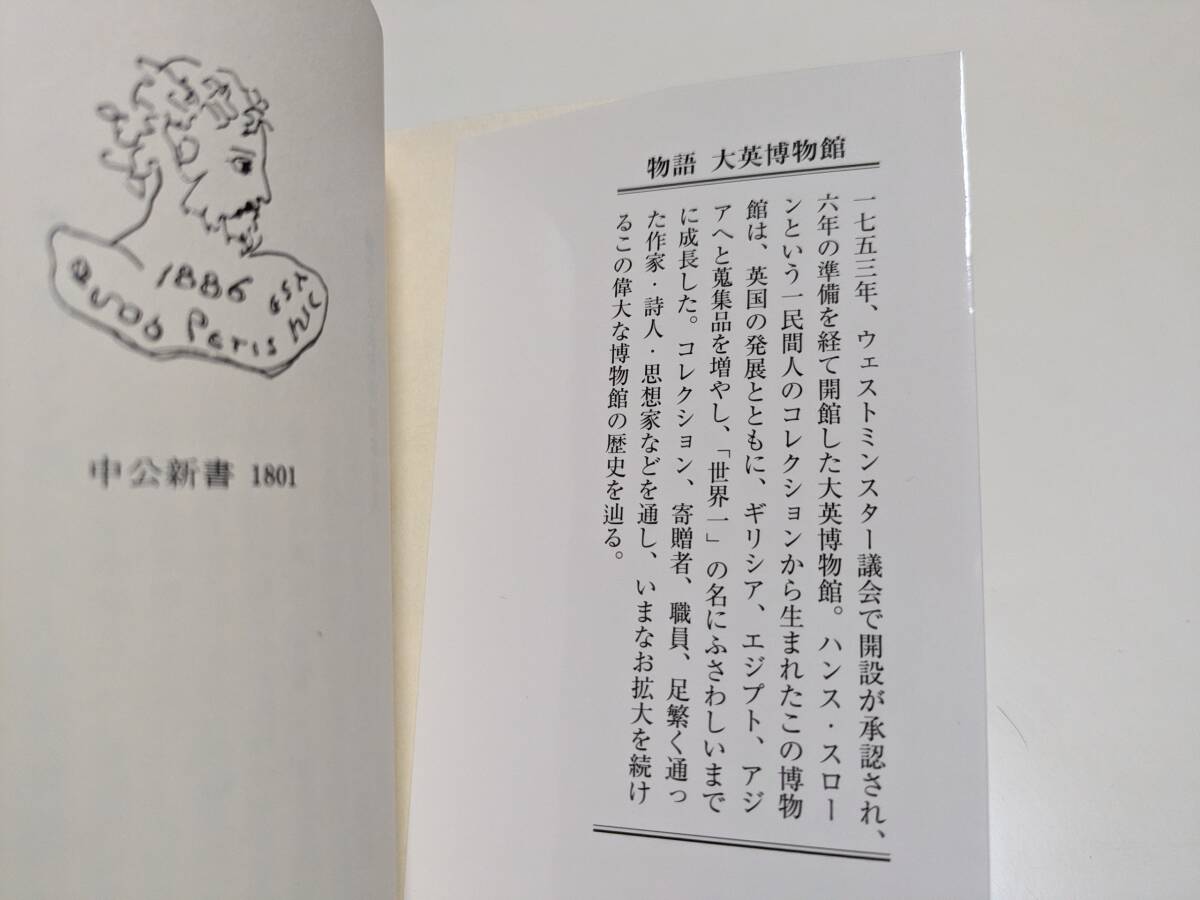 物語 大英博物館
一七五三年、ウェストミンスター議会で開設が承認され、
六年の準備を経て開館した大英博物館。ハンス・スロー
ンという一民間人のコレクションから生まれたこの博物
館は、英国の発展とともに、ギリシア、エジプト、アジ
アへと蒐集品を増やし、「世界一」の名にふさわしいまで
に成長した。コレクション、寄贈者、職員、足繁く通っ
た作家・詩人・思想家などを通し、いまなお拡大を続け
るこの偉大な博物館の歴史を辿る。
1886
Paris
中公新書 1801